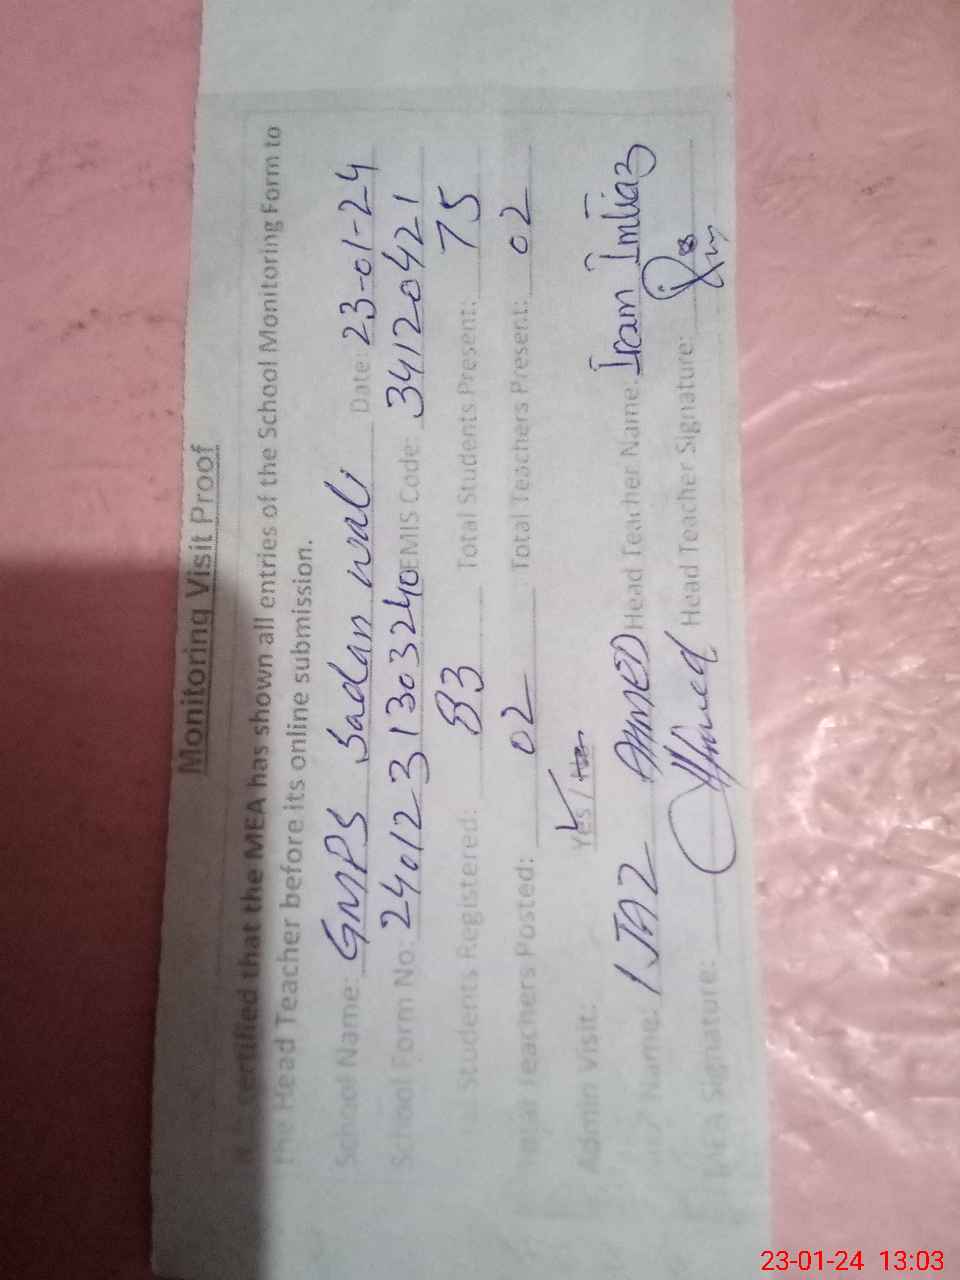 Monitoring Visit Proof
certified that the MEA has shown all entries of the School Monitoring Form to
the Head Teacher before its online submission.
School Name: GMPS Sadan wali Date: 23-01-24
School Form No: 2401231303240 EMIS Code: 34120421
Students Registered: 83 Total Students Present: 75
Teachers Posted: 02 Total Teachers Present: 02
Admin Visit: Yes /
Name: IJAZ AHMED Head Teacher Name: Iram Imtiaz
MEA Signature: Ahmed Head Teacher Signature:
23-01-24 13:03